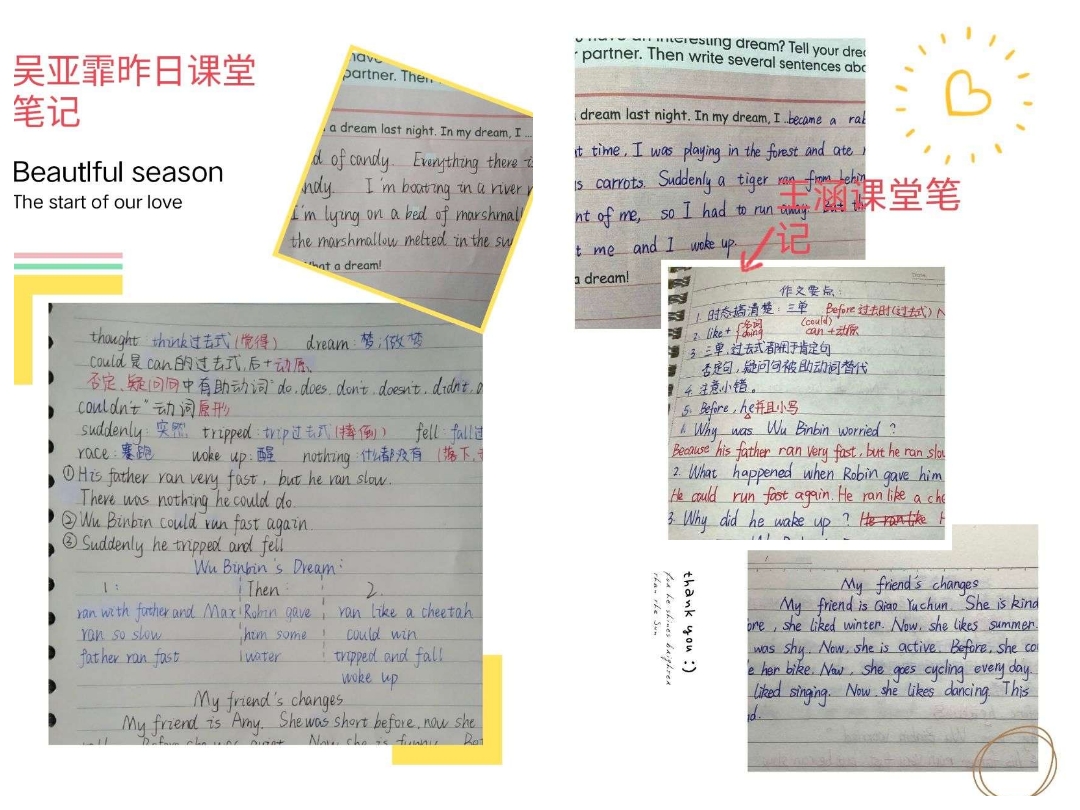 吴亚霏昨日课堂
笔记
BeautIful season
The start of our love
have
partner. Then
a dream last night. In my dream, I ...
d of candy. Everything there is
ndy. I'm boating in a river
I'm lying on a bed of marshmal
the marshmallow melted in the su
hat a dream!
thought think过去式(觉得) dream:梦;做梦
could是can的过去式,后+动原
否定、疑问句中有助动词"do、does、don't、doesn't、didn't、
couldn't"动词原形
suddenly:突然 tripped:trip过去式(摔倒) fell:fall过
race:赛跑 woke up:醒 nothing:什么都没有 (落下、
①His father ran very fast, but he ran slow.
There was nothing he could do.
②Wu Binbin could run fast again.
③Suddenly he tripped and fell
Wu Binbin's Dream:
1: Then 2.
ran with father and Max Robin gave ran like a cheetah
ran so slow him some could win
father ran fast water tripped and fall
woke up
My friend's changes
My friend is Amy. She was short before, now she
Before she was quiet. Now she is funny. Bef
have an interesting dream? Tell your drea
partner. Then write several sentences abo
dream last night. In my dream, I became a rab
t time, I was playing in the forest and ate
s carrots. Suddenly a tiger ran from behin
nt of me, so I had to run away. But th
t me and I woke up.
a dream!
王涵课堂笔
记
作文要点:
1. 时态搞清楚:三单 Before 过去时(过去式) N
2. like+ 名词 doing (could) can+动原
3. 三单,过去式都用于肯定句
否定句,疑问句被助动词替代
4. 注意小错。
5. Before, he并且小写
1. Why was Wu Binbin worried?
Because his father ran very fast, but he ran slow
2. What happened when Robin gave him
He could run fast again. He ran like a che
3. Why did he wake up? He ran like H
thank you :)
for he shines brighter
than the sun
My friend's changes
My friend is Qiao Yuchun. She is kind
ore, she liked winter. Now, she likes summer.
was shy. Now, she is active. Before, she cou
e her bike. Now, she goes cycling every day.
liked singing. Now she likes dancing. This
d.